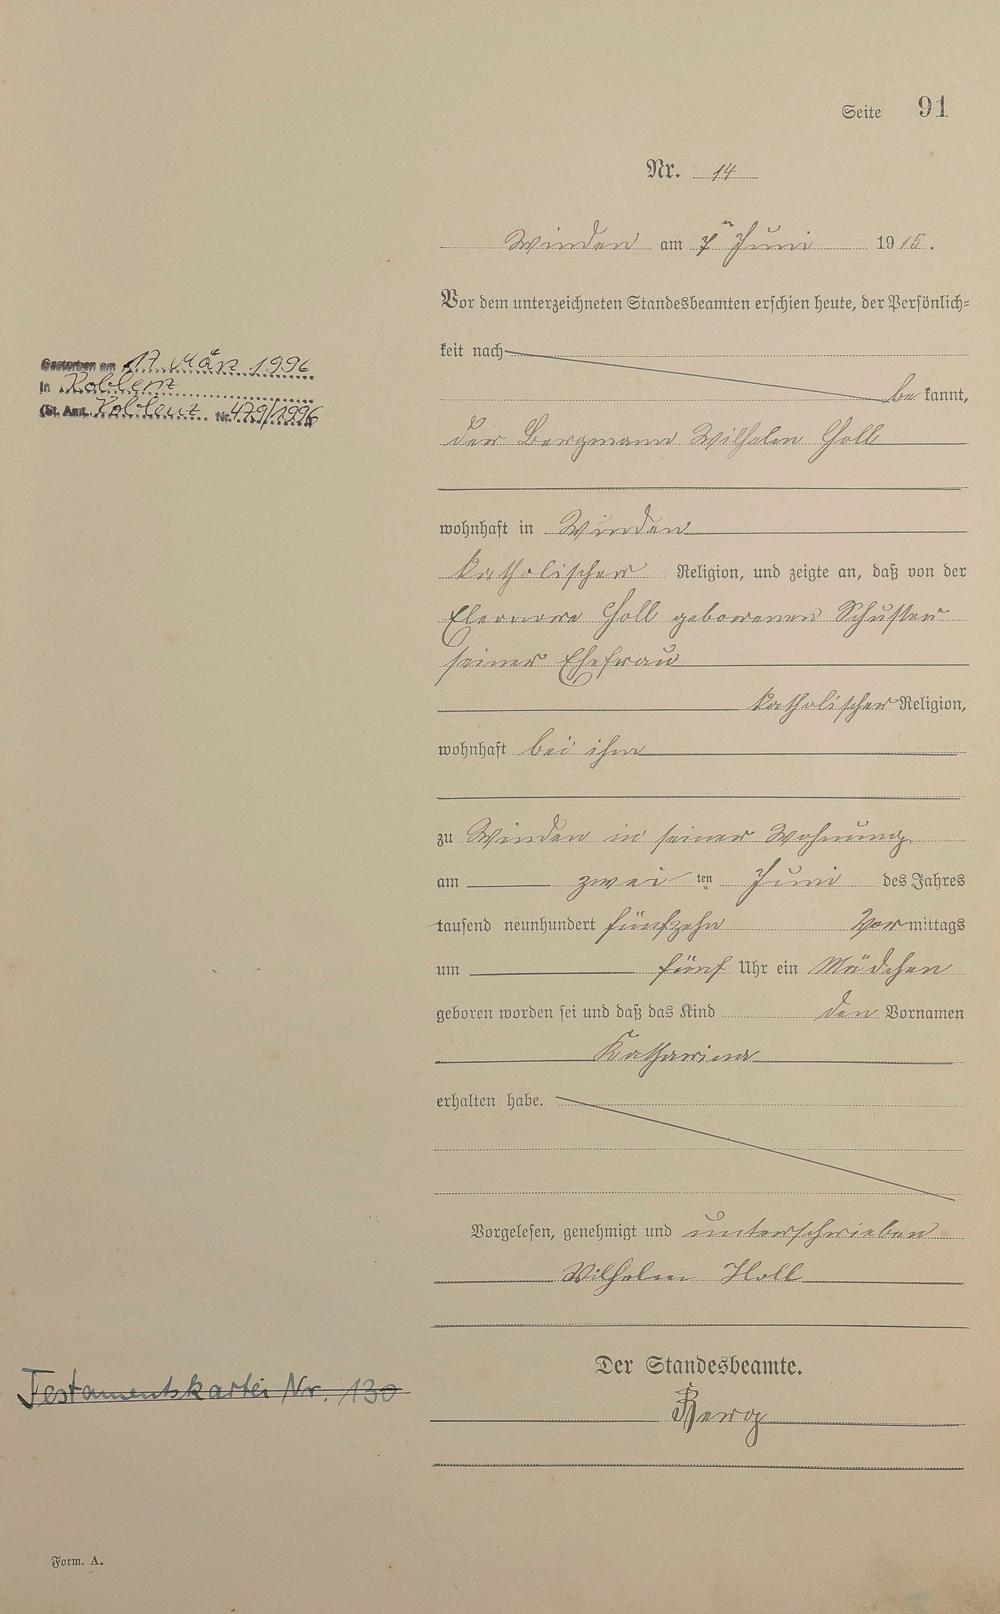 Seite 91
Nr. 14
Winden am 7n Juni 1915.
Vor dem unterzeichneten Standesbeamten erschien heute, der Persönlich=
keit nach
be kannt,
der Bergmann Wilhelm Holl
wohnhaft in Winden
katholischer Religion, und zeigte an, daß von der
Eleonore Holl geborenen Schuster
seiner Ehefrau
katholischer Religion,
wohnhaft bei ihm
zu Winden in seiner Wohnung
am zwei ten Juni des Jahres
tausend neunhundert fünfzehn Vor mittags
um fünf Uhr ein Mädchen
geboren worden sei und daß das Kind den Vornamen
Katharina
erhalten habe.
Vorgelesen, genehmigt und unterschrieben
Wilhelm Holl
Der Standesbeamte.
Gestorben am 17 März 1996
in Koblenz
(St. Amt. Koblenz Nr. 479/1996
Testamentskartei Nr. 130
Form. A.